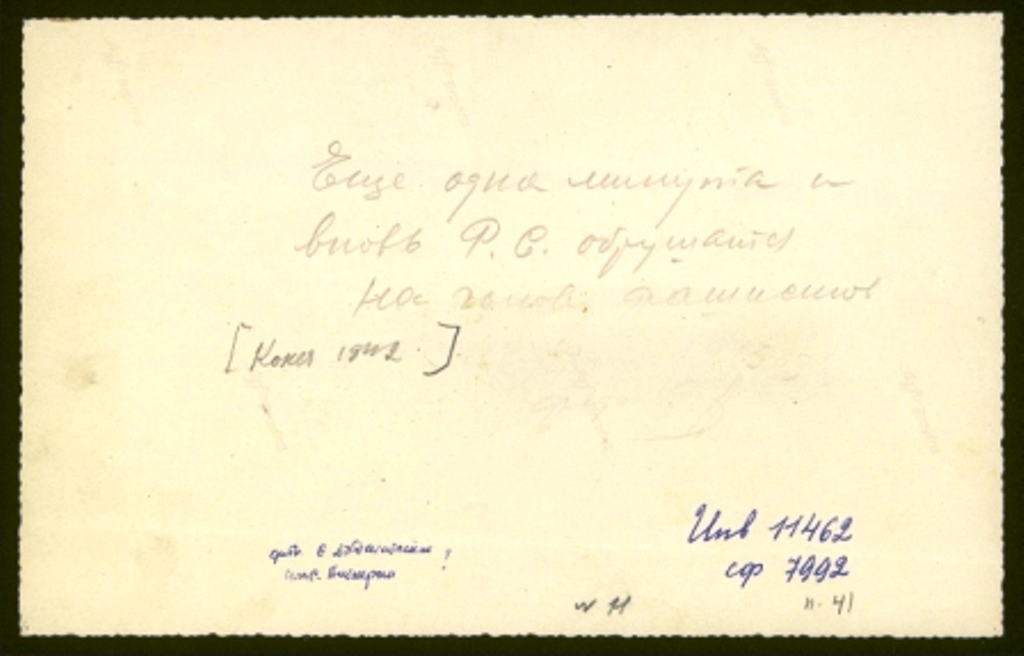 Еще одна минута и
вновь Р.С. обрушатся
на голов. фашистов
[Конец 1942]
Инв 11462
сф 7992
п. 41
11